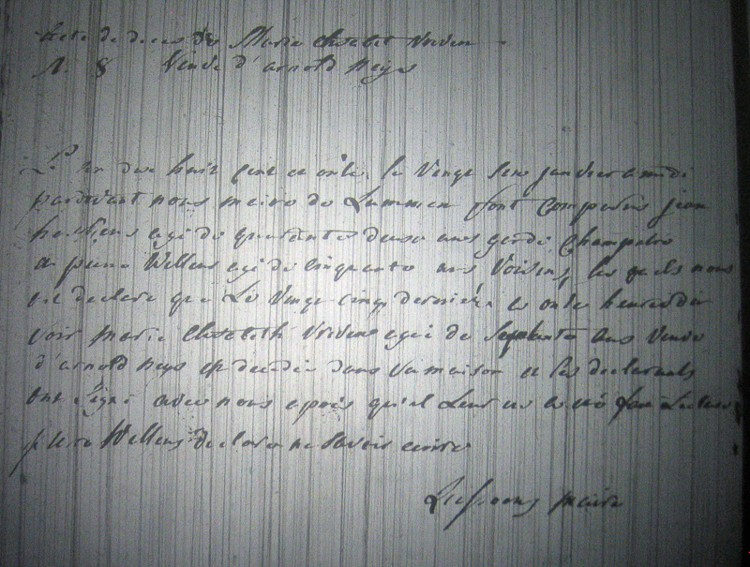 acte de deces de Marie Elisabet Vriven
N. 8 Veuve d'arnold neys
L'an dix huit cent et onze le vingt six janvier a midi
pardevant nous maire de Lummen sont comparus jean
agé de quarante deux ans garde Champetre
et pierre Willems agé de cinquante ans Voisins, les quels nous
ont declare que Le Vingt cinq dernier a onze heures du
soir marie Elisabeth Vriven agée de Septante ans Veuve
d'arnold neys est decedée dans sa maison et les declarants
ont signé avec nous apres qu'il Leur en a eté fait Lecture
pierre Willems declare ne savoir ecrire
maire